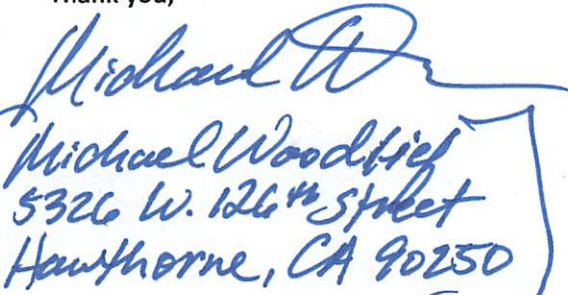 Thank you,
Michael W
Michael Woodfield
5326 W. 126th Street
Hawthorne, CA 90250